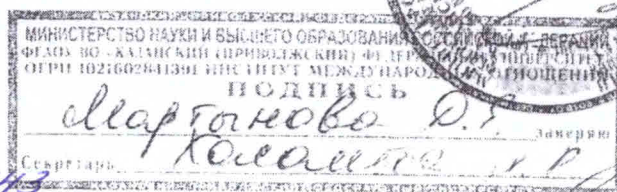 МИНИСТЕРСТВО НАУКИ И ВЫСШЕГО ОБРАЗОВАНИЯ РОССИЙСКОЙ ФЕДЕРАЦИИ
ФГАОУ ВО «КАЗАНСКИЙ (ПРИВОЛЖСКИЙ) ФЕДЕРАЛЬНЫЙ УНИВЕРСИТЕТ»
ОГРН 1021602841391 ИНСТИТУТ МЕЖДУНАРОДНЫХ ОТНОШЕНИЙ
ПОДПИСЬ
Мартынова заверяю
Секретарь